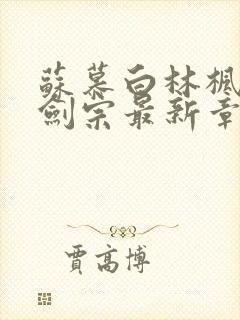 蘇慕白林楓
劍宗最新章
賈高博